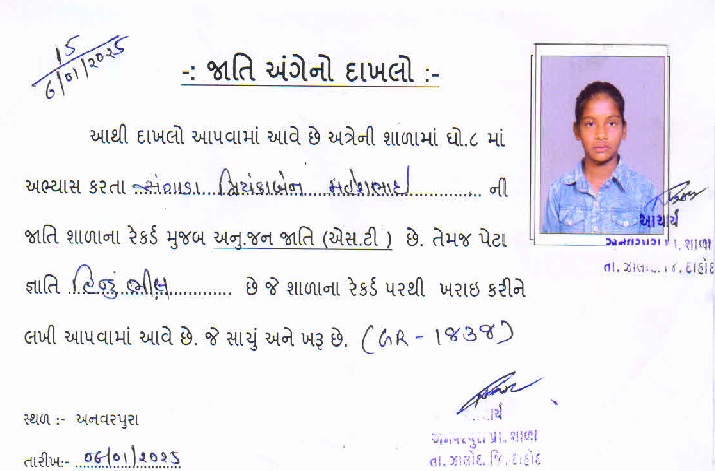 15
૬/૦૧/૨૦૨૬
-: જાતિ અંગેનો દાખલો :-
આથી દાખલો આપવામાં આવે છે અત્રેની શાળામાં ધો.૮ માં
અભ્યાસ કરતા પ્રિયંકાબેન મહેશભાઇ ની
જાતિ શાળાના રેકર્ડ મુજબ અનુ.જન જાતિ (એસ.ટી ) છે. તેમજ પેટા
જ્ઞાતિ હિન્દુ ભીલ છે જે શાળાના રેકર્ડ પરથી ખરાઇ કરીને
લખી આપવામાં આવે છે. જે સાચું અને ખરૂ છે. (GR - ૧૪૩૪)
આચાર્ય
અનવરપુરા પ્રા. શાળા
તા. ઝાલોદ, જિ. દાહોદ
સ્થળ :- અનવરપુરા
તારીખ:- ૦૬/૦૧/૨૦૨૬
આચાર્ય
અનવરપુરા પ્રા. શાળા
તા. ઝાલોદ, જિ. દાહોદ